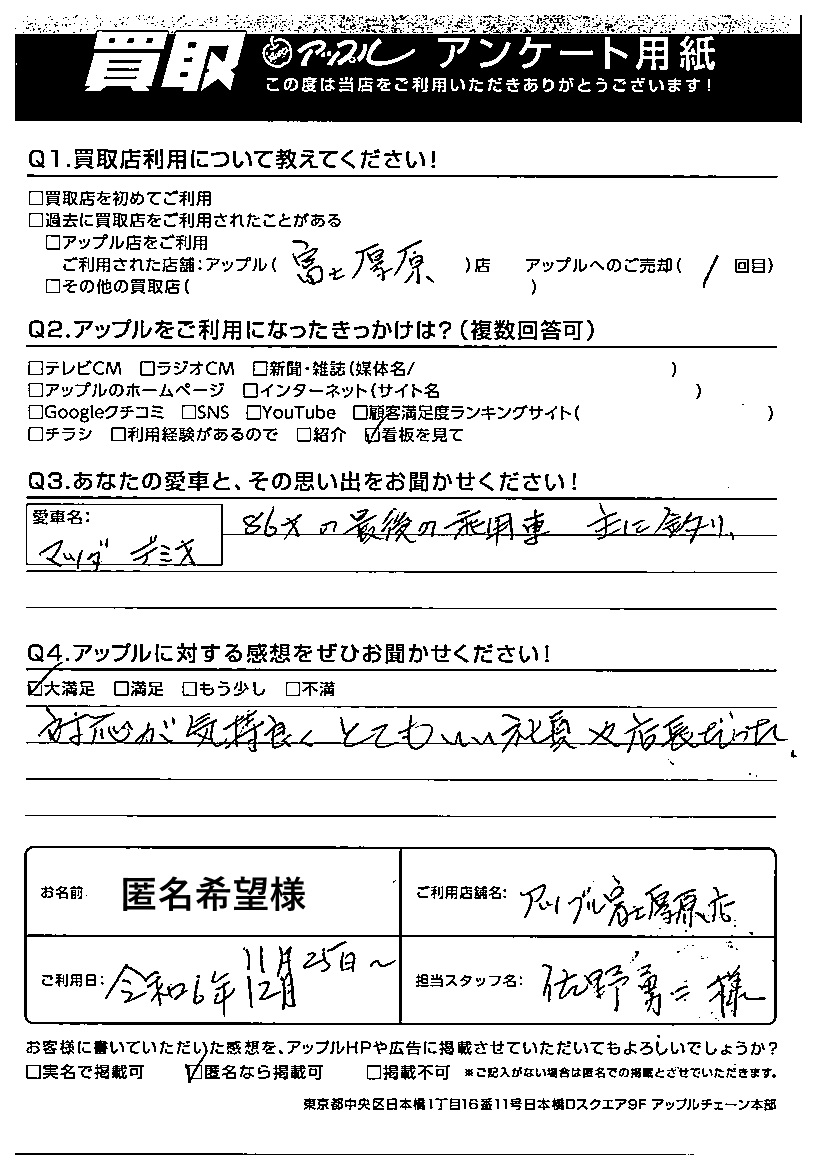 買取 アップル アンケート用紙
この度は当店をご利用いただきありがとうございます!
Q1.買取店利用について教えてください!
□買取店を初めてご利用
□過去に買取店をご利用されたことがある
□アップル店をご利用
ご利用された店舗:アップル( 富士厚原 )店 アップルへのご売却( 1 回目)
□その他の買取店( )
Q2.アップルをご利用になったきっかけは?(複数回答可)
□テレビCM □ラジオCM □新聞・雑誌(媒体名/ )
□アップルのホームページ □インターネット(サイト名 )
□Googleクチコミ □SNS □YouTube □顧客満足度ランキングサイト( )
□チラシ □利用経験があるので □紹介 ☑看板を見て
Q3.あなたの愛車と、その思い出をお聞かせください!
愛車名: 86才の最後の乗用車 主に釣り、
マツダ デミオ
Q4.アップルに対する感想をぜひお聞かせください!
☑大満足 □満足 □もう少し □不満
対応が気持良くとてもいい社員や店長だった、
お名前 匿名希望様 ご利用店舗名: アップル富士厚原店
ご利用日: 令和6年 11月25日~ 12月 担当スタッフ名: 佐野勇二様
お客様に書いていただいた感想を、アップルHPや広告に掲載させていただいてもよろしいでしょうか?
□実名で掲載可 ☑匿名なら掲載可 □掲載不可 ※ご記入がない場合は匿名での掲載とさせていただきます。
東京都中央区日本橋1丁目16番11号日本橋ロスクエア9F アップルチェーン本部